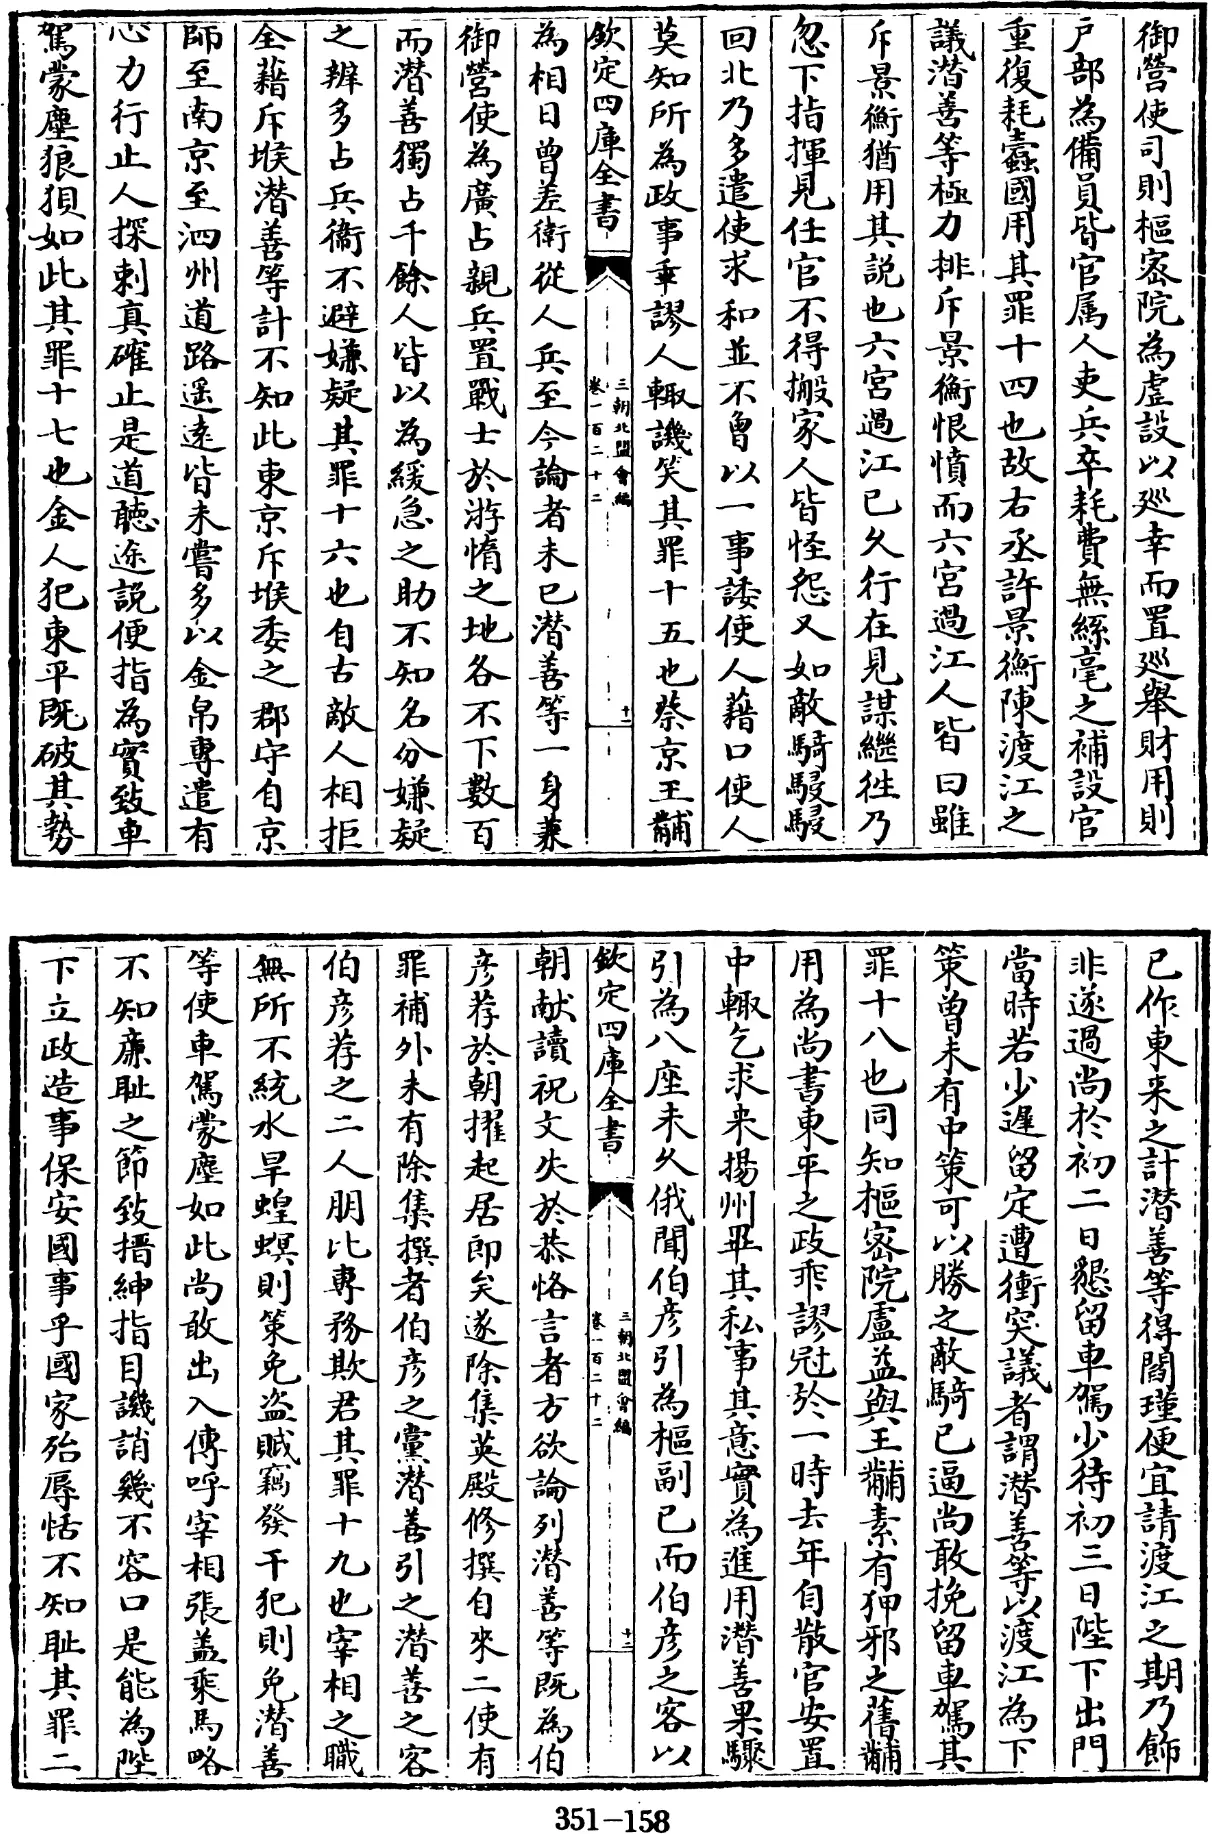 御營使司則樞密院為虛設以廵幸而置廵舉財用則
户部為備員皆官属人吏兵卒耗費無絲毫之補設官
重復耗蠧國用其罪十四也故右丞許景衡陳渡江之
議潜善等極力排斥景衡恨憤而六宫過江人皆曰雖
斥景衡猶用其説也六宫過江已久行在見謀繼徃乃
忽下指揮見任官不得搬家人皆怪怨又如敵騎駸駸
回北乃多遣使求和並不曾以一事諉使人藉口使人
莫知所為政事乖謬人輙譏笑其罪十五也蔡京王黼
欽定四庫全書
三朝北盟會編
卷一百二十二
十一
為相日曾差衛從人兵至今論者未已潜善等一身兼
御營使為廣占親兵置戰士於游惰之地各不下數百
而潜善獨占千餘人皆以為緩急之助不知名分嫌疑
之辨多占兵衞不避嫌疑其罪十六也自古敵人相拒
全藉斥堠潜善等計不知此東京斥堠委之郡守自京
師至南京至泗州道路遥遠皆未嘗多以金帛專遣有
心力行止人探刺真確止是道聽途説便指為實致車
駕蒙塵狼狽如此其罪十七也金人犯東平既破其勢
已作東來之計潜善等得閻瑾便宜請渡江之期乃飾
非遂過尚於初二日懇留車駕少待初三日陛下出門
當時若少遲留定遭衝突議者謂潜善等以渡江為下
策曾未有中策可以勝之敵騎已逼尚敢挽留車駕其
罪十八也同知樞密院盧益與王黼素有狎邪之舊黼
用為尚書東平之政乖謬冠於一時去年自散官安置
中輙乞求来揚州畢其私事其意實為進用潜善果驟
引為八座未久俄聞伯彦引為樞副已而伯彦之客以
欽定四庫全書
三朝北盟會編
卷一百二十二
十二
朝献讀祝文失於恭恪言者方欲論列潜善等既為伯
彦荐於朝擢起居郎矣遂除集英殿修撰自來二使有
罪補外未有除集撰者伯彦之黨潜善引之潜善之客
伯彦荐之二人朋比專務欺君其罪十九也宰相之職
無所不統水旱蝗螟則策免盗賊竊發干犯則免潜善
等使車駕蒙塵如此尚敢出入傳呼宰相張盖乘馬略
不知廉耻之節致搢紳指目譏誚幾不容口是能為陛
下立政造事保安國事乎國家殆辱恬不知耻其罪二
351-158